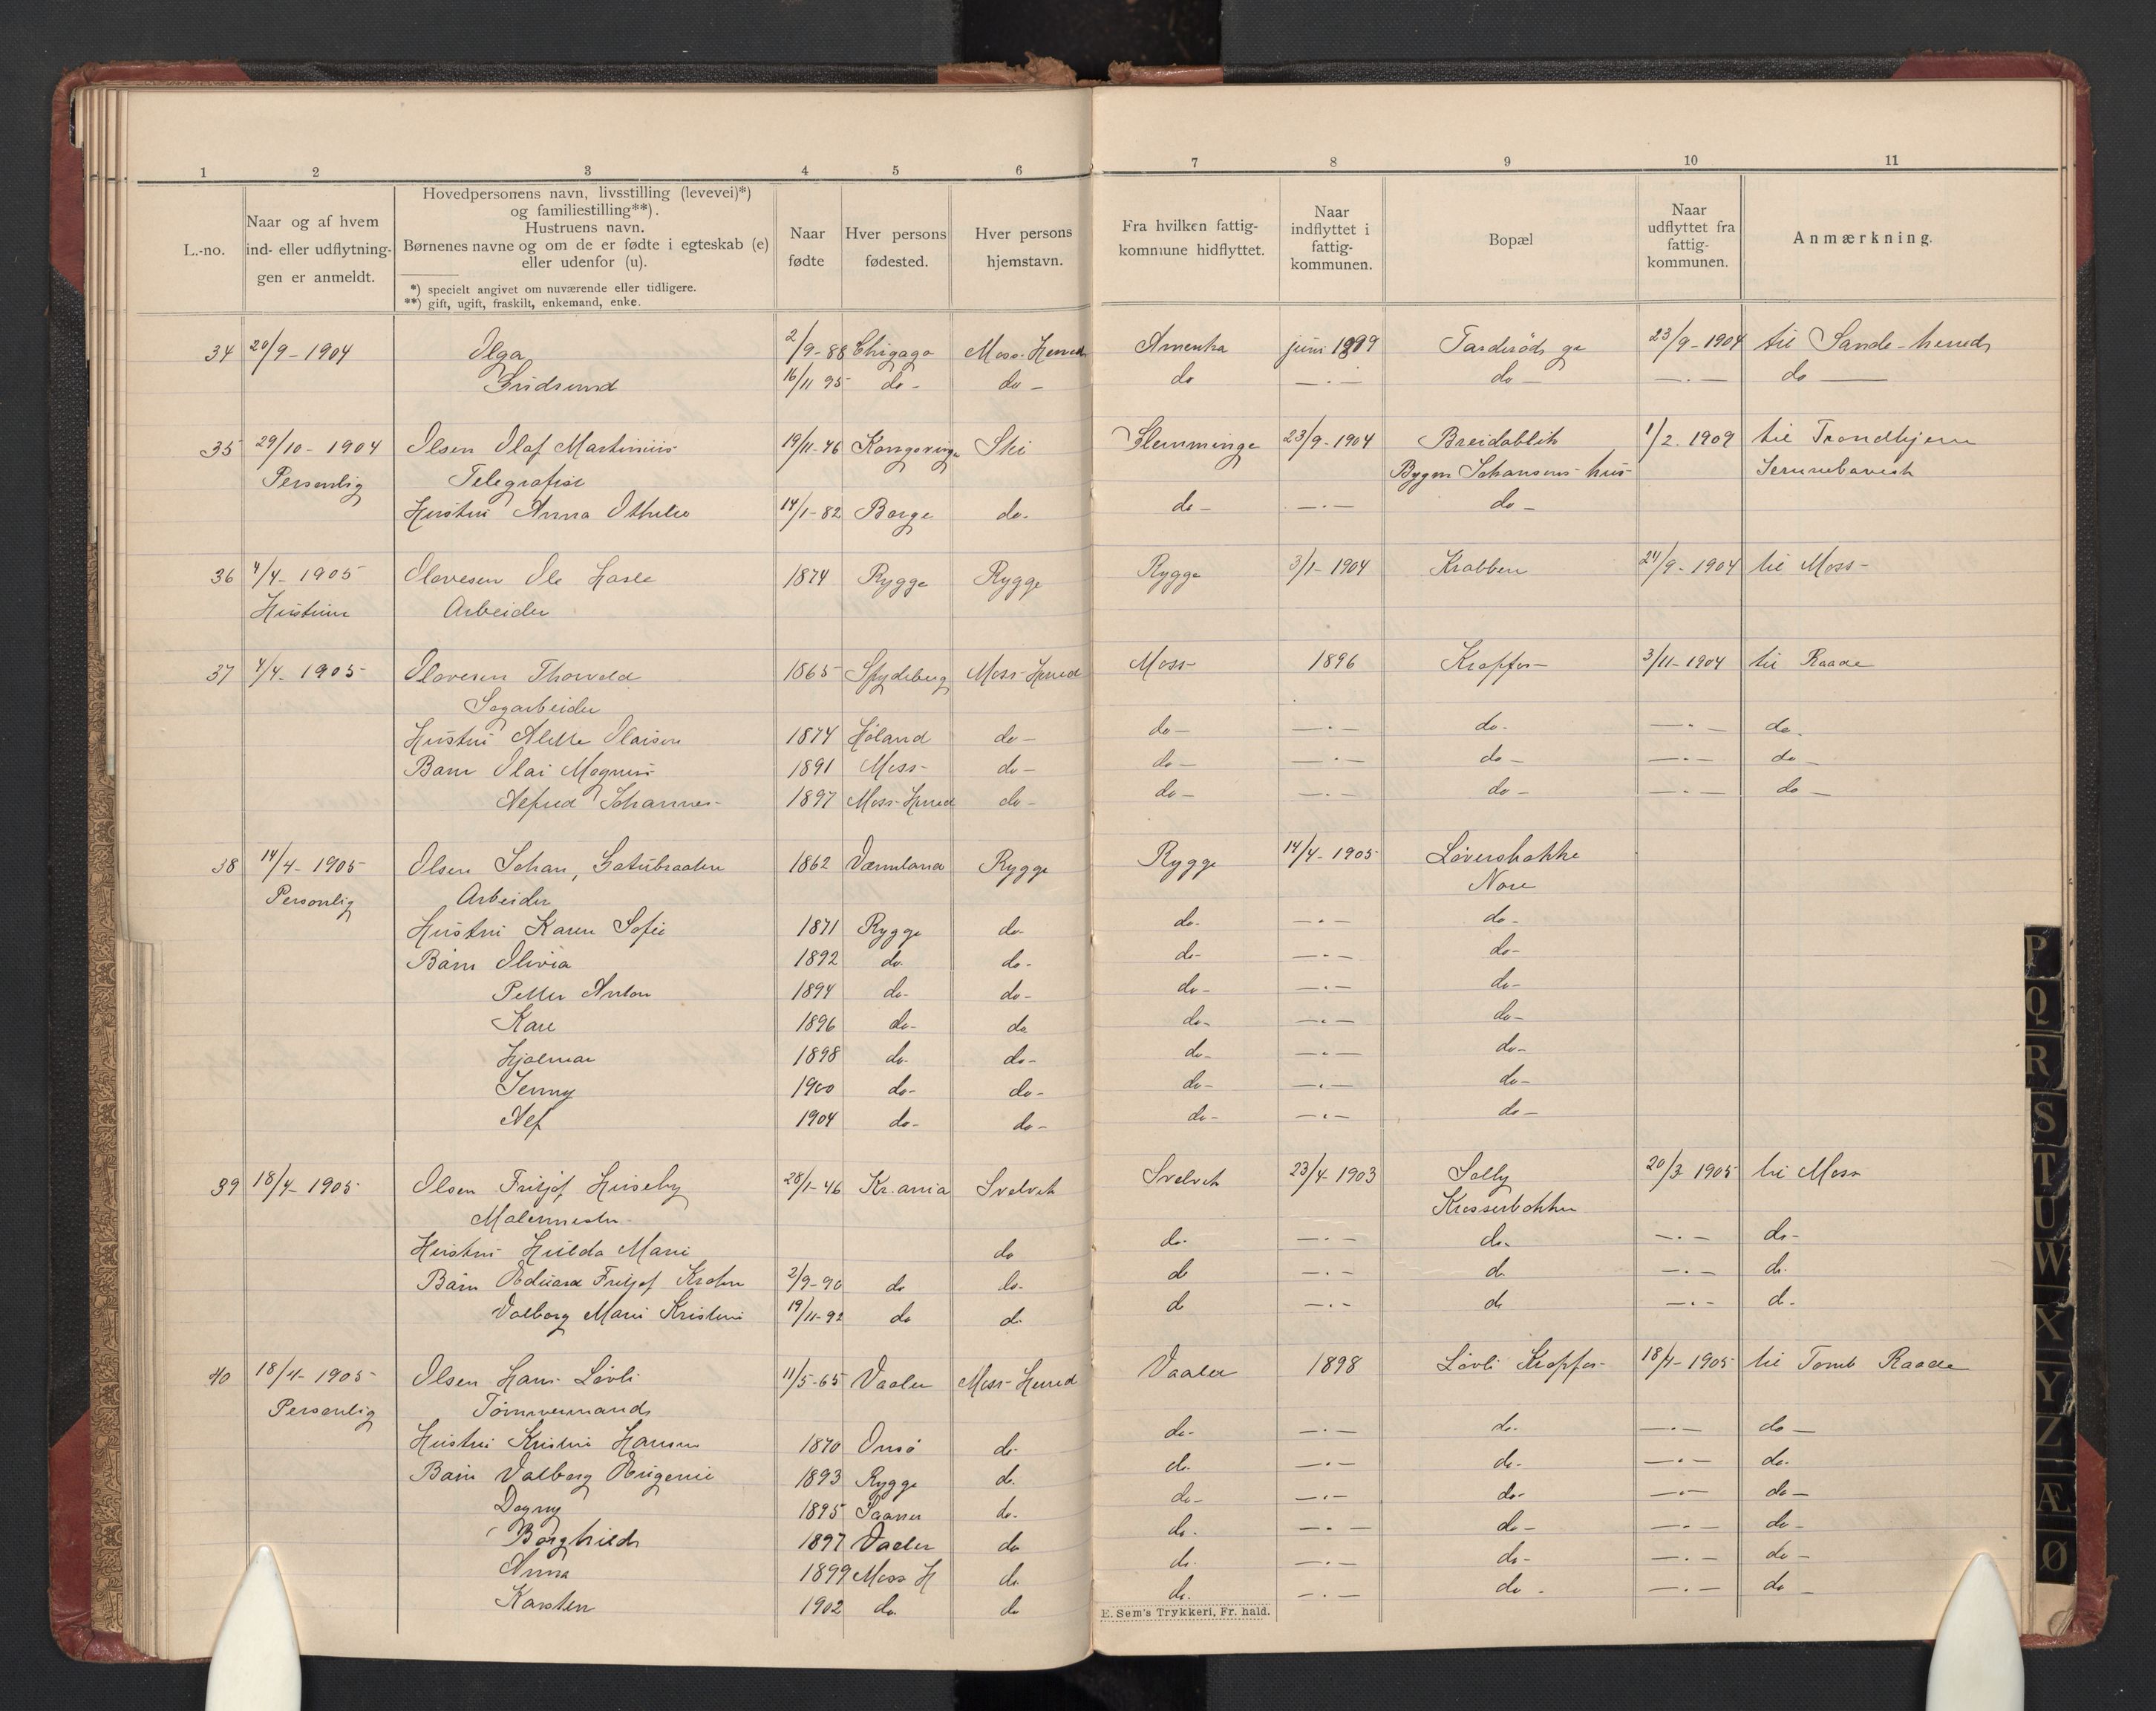 1 2 3 4 5 6 7 8 9 10 11
L.-no.
Naar og af hvem
ind- eller udflytnin-
gen er anmeldt.
Hovedpersonens navn, livsstilling (levevei)*)
og familiestilling**).
Hustruens navn.
Børnenes navne og om de er fødte i egteskab (e)
eller udenfor (u).
*) specielt angivet om nuværende eller tidligere.
**) gift, ugift, fraskilt, enkemand, enke.
Naar
fødte
Hver persons
fødested.
Hver persons
hjemstavn.
Fra hvilken fattig-
kommune hidflyttet.
Naar
indflyttet i
fattig-
kommunen.
Bopæl
Naar
udflyttet fra
fattig-
kommunen.
Anmærkning.
34 20/9-1904 Olga 2/9-88 Chigago Moss-Herred Amerika juni 1899 Tarderöds 23/9-1904 til Sande-herred
Gudrund 16/11 95 do- do- do —·— do- —·— do —
35 29/10-1904 Olsen Olaf Martinius 19/11-76 Kongsvinge Ski Slemminge 23/9-1904 Breidablik 1/2. 1909 til Trondhjem
Personlig Telegrafist Bygm Johansens hus Jernebanesk
Hustru Anna Othelie 14/1-82 Borge do. do- —·— do-
36 4/4-1905 Olavesen Ole Hasle 1874 Rygge Rygge Rygge 3/1-1904 Krabben 24/9-1904 til Moss-
Hustruen Arbeider
37 4/4-1905 Olavesen Thorvald 1865 Spydeberg Moss-Herred Moss 1896 Krapfos 3/11-1904 til Raade
Sagarbeider
Hustru Alette Olaisen 1874 Höland do- do- —·— do- —·— do.
Barn Olai Magnus 1891 Moss- do- do- —·— do- —·— do-
Alfred Johannes 1897 Moss-Herred do- do- —·— do- —·— do-
38 14/4-1905 Olsen Johan, Gatubraaten 1862 Værmland Rygge Rygge 14/4-1905 Löversbakke
Personlig Arbeider Nore
Hustru Karen Sofie 1871 Rygge do- do- —·— do-
Barn Olivia 1892 do. do- do- —·— do-
Petter Anton 1894 do- do- do- —·— do-
Kare 1896 do- do do- —·— do-
Hjalmar 1898 do- do- do- —·— do-
Jenny 1900 do- do- do- —·— do-
Alf 1904 do- do- do- —·— do-
39 18/4-1905 Olsen Fritjof Huseby 28/1-46 Kr.ania Svelvik Svelvik 23/4-1903 Solby 20/3-1905 til Moss
Malermester Krosserbakken
Hustru Hulda Marie do do- —·— do- —·— do-
Barn Edvard Fritjof Krohn 2/9-90 do do- do —·— do —·— do
Valborg Marie Kristine 19/11-92 do do do —·— do —·— do-
40 18/4-1905 Olsen Hans Lövli 11/5-65 Vaaler Moss-Herred Vaaler 1898 Lövli Krapfos- 18/4-1905 til Tomb Raade
Personlig Tömmermand
Hustru Kristine Hansen 1870 Onsö do- do- —·— do- —·— do-
Barn Valborg Eugenie 1893 Rygge do. do. —·— do- —·— do-
Dagny 1895 Saaner do- do- —·— do- —·— do-
Borghild 1897 Vaaler do do- —·— do- —·— do-
Anna 1899 Moss H do do- —·— do- —·— do-
Karsten 1902 do. do do. —·— do- —·— do-
E. Sem's Trykkeri, Fr. hald.
P
Q
R
S
T
U
W
X
Y
Z
Æ
Ø